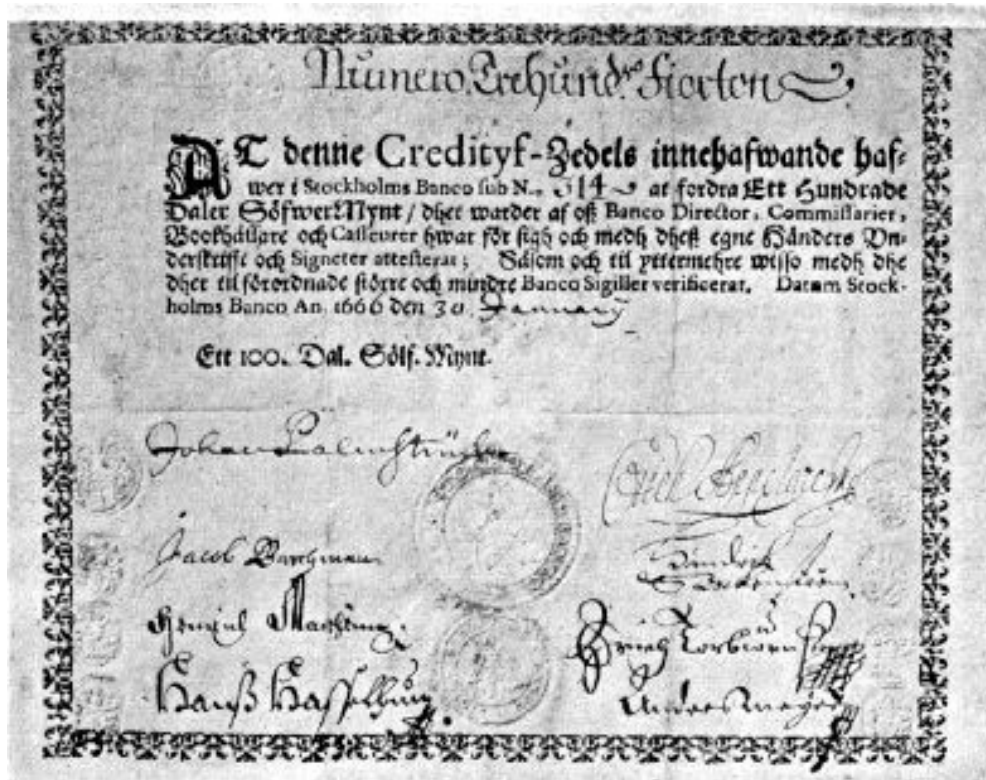 Numero. Trehund.ʳᵃ Fiorton
AT denne Credityf-Zedels innehafwande haf-
wer i Stockholms Banco sub N.. 314 at fordra Ett Hundrade
Daler Söfwer.Mynt / dhet warder af oß Banco Director, Commissarier,
Bookhållare och Casseurer hwar för sigh och medh dheß egne Händers Un-
derskrifft och Signeter attesterat; Såsom och til yttermehre wisso medh dhe
dher til förordnade större och mindre Banco Sigiller verificerat. Datum Stock-
holms Banco An. 1666 den 30 January
Ett 100. Dal. Sölf. Mynt.
Johan Palmstruch
Jacob
Hans
Anders